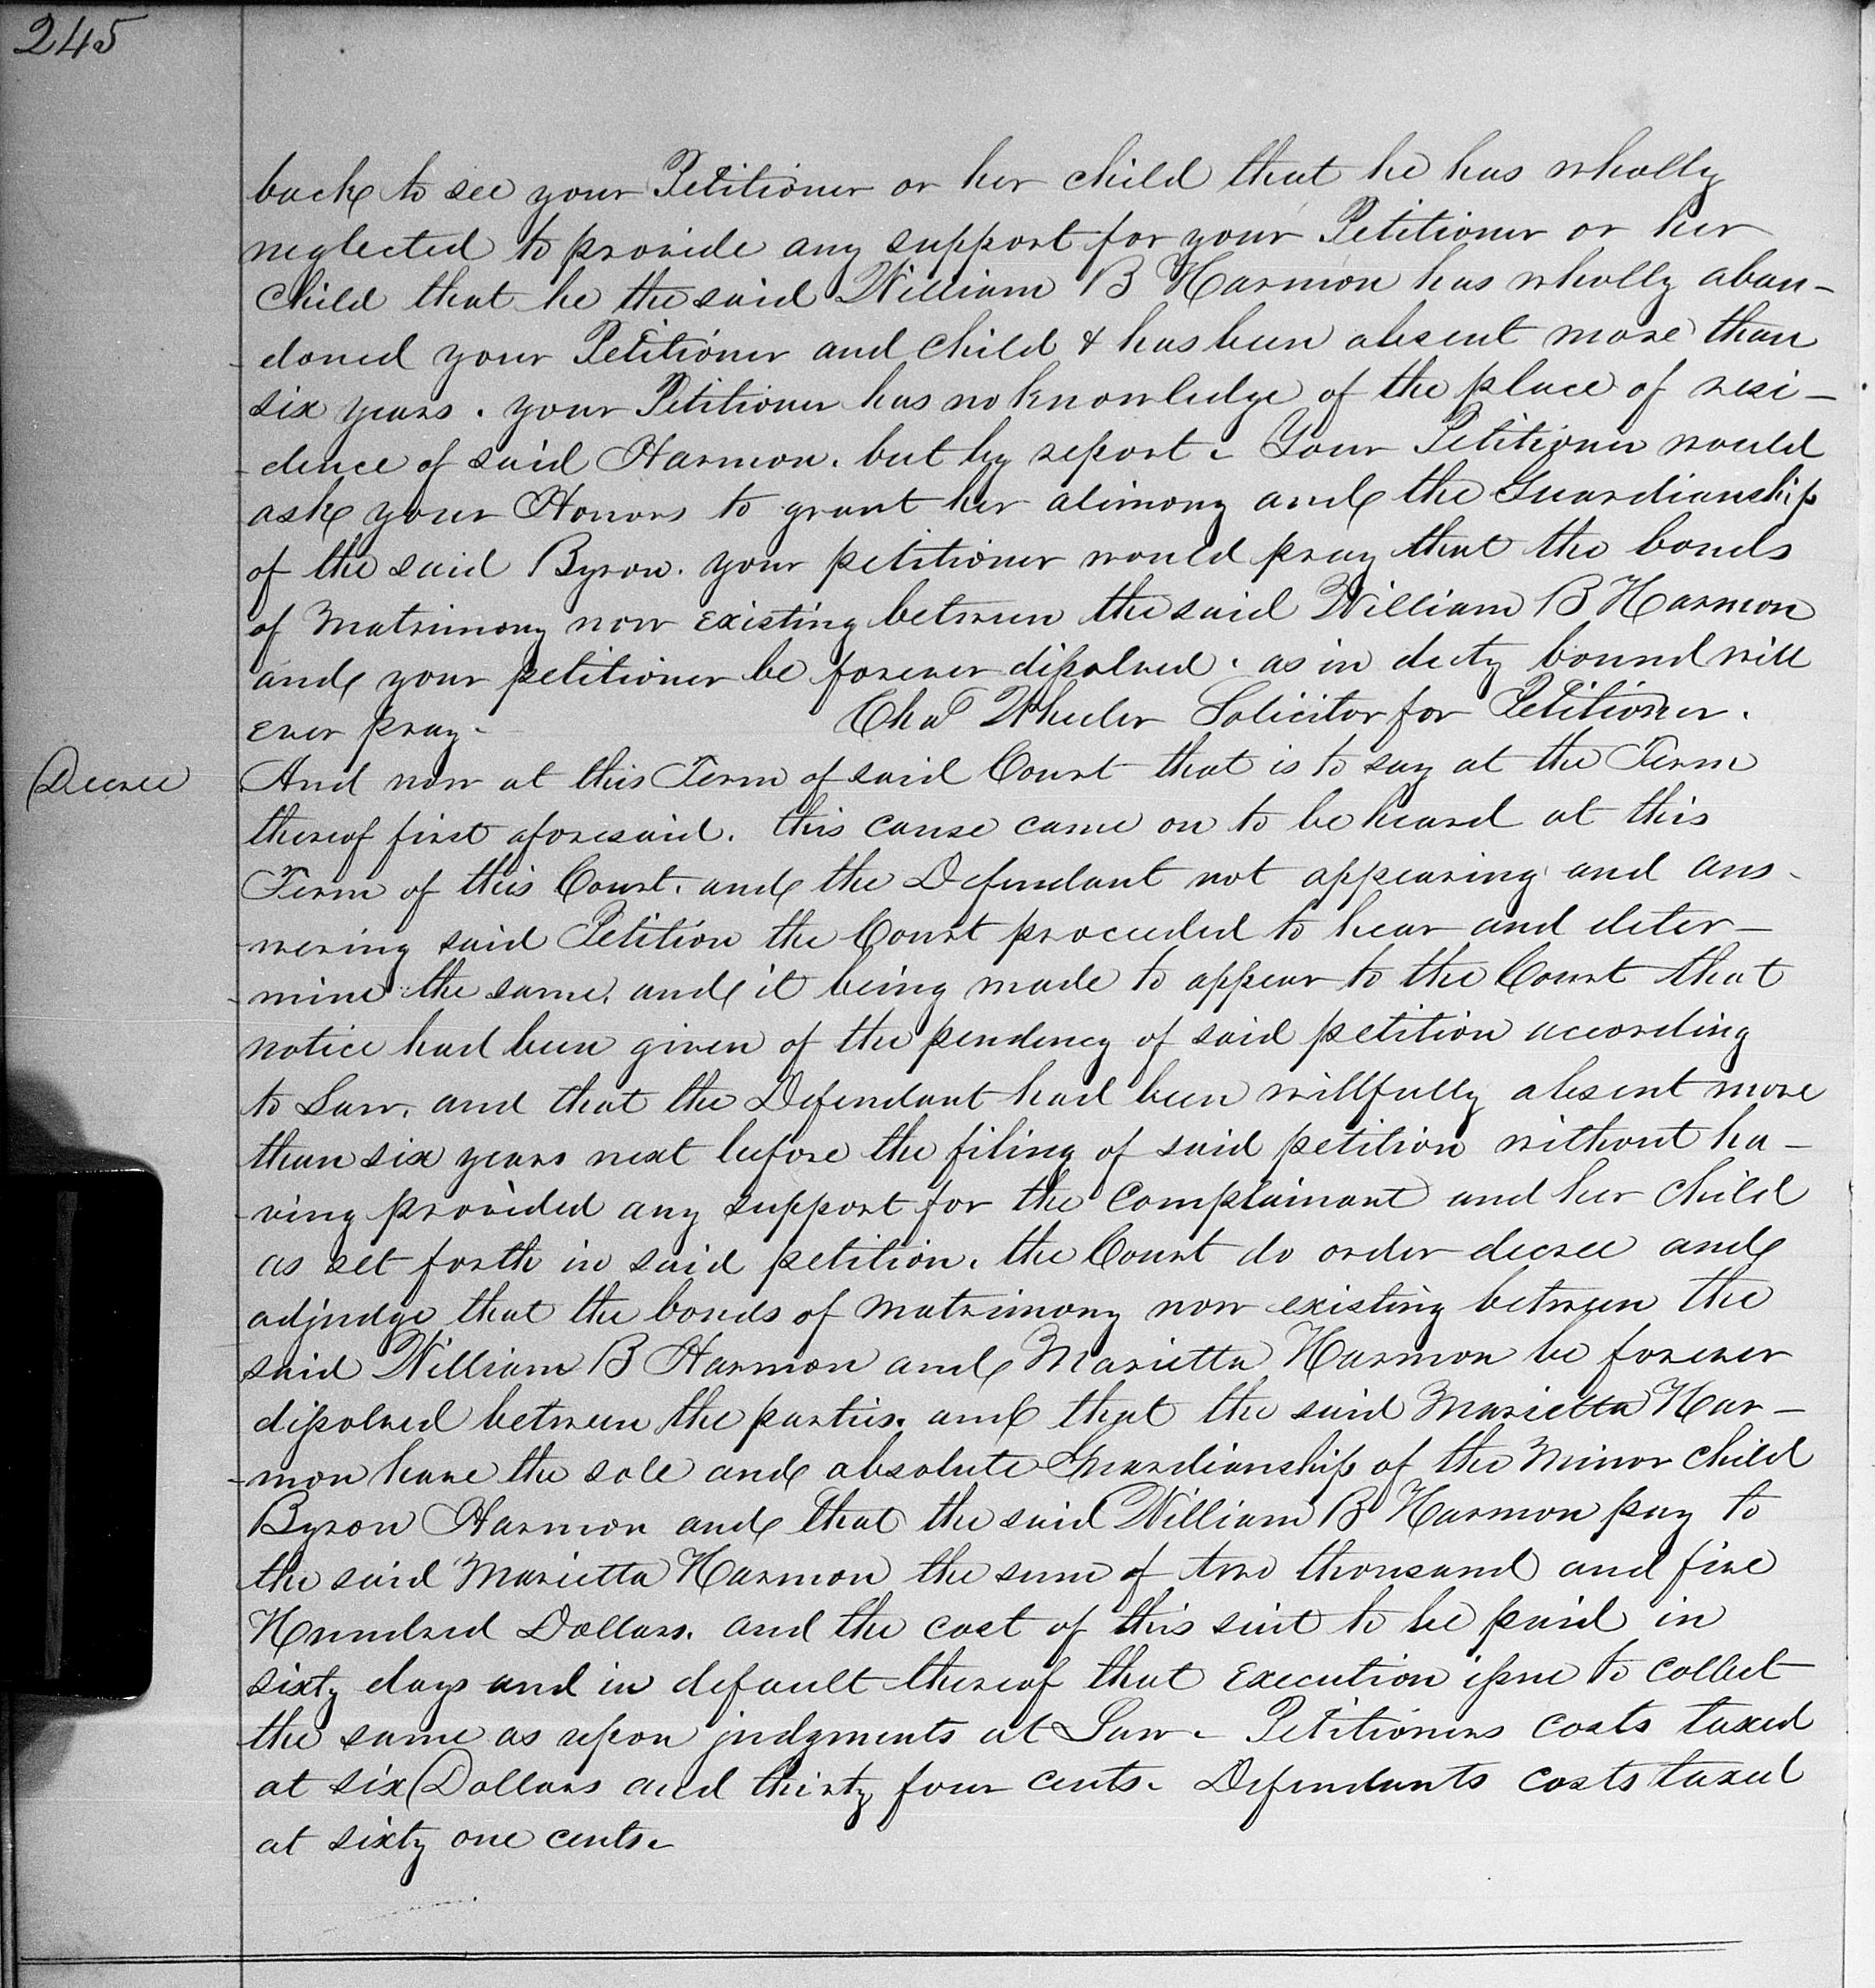 245
back to see your Petitioner or her child that he has wholly
neglected to provide any support for your Petitioner or her
child that he the said William B Harmon has wholly aban-
-doned your Petitioner and child & has been absent more than
six years. your Petitioner has no knowledge of the place of resi-
-dence of said Harmon. but by report. Your Petitioner would
ask your Honors to grant her alimony and the Guardianship
of the said Byron. your petitioner would pray that the bonds
of Matrimony now existing between the said William B Harmon
and your petitioner be forever dissolved. as in duty bound will
ever pray. Chas Wheeler Solicitor for Petitioner.
Decree
And now at this Term of said Court that is to say at the Term
thereof first aforesaid. this cause came on to be heard at this
Term of this Court. and the Defendant not appearing and ans-
-wering said Petition the Court proceeded to hear and deter-
-mine the same. and it being made to appear to the Court that
notice had been given of the pendency of said petition according
to Law. and that the Defendant had been willfully absent more
than six years next before the filing of said petition without ha-
-ving provided any support for the complainant and her child
as set forth in said petition. the Court do order decree and
adjudge that the bonds of matrimony now existing between the
said William B Harmon and Marietta Harmon be forever
dissolved between the parties. and that the said Marietta Har-
-mon have the sole and absolute Guardianship of the Minor child
Byron Harmon and that the said William B Harmon pay to
the said Marietta Harmon the sum of two thousand and five
Hundred Dollars. and the cost of this suit to be paid in
sixty days and in default thereof that Execution issue to collect
the same as upon judgments at Law. Petitioners costs taxed
at six Dollars and thirty four cents. Defendants costs taxed
at sixty one cents.